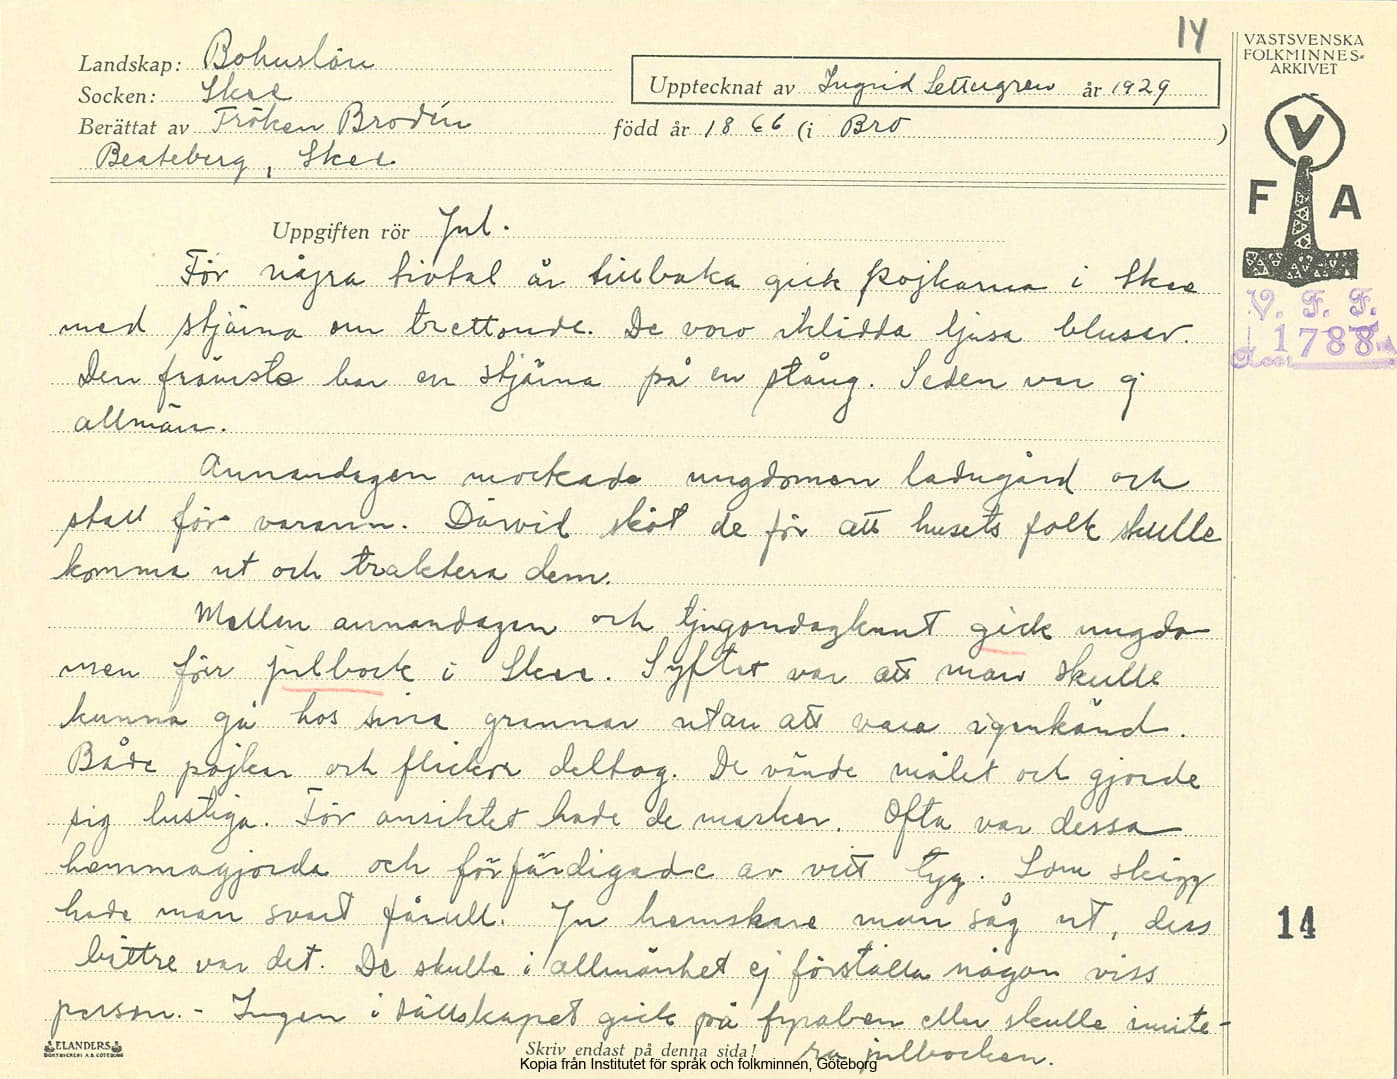 14
Landskap: Bohuslän
Socken: Skee
Berättat av Fröken Brodin
Beateberg, Skee
Upptecknat av Ingrid Settergren år 1929
född år 1866 (i Bro )
VÄSTSVENSKA
FOLKMINNES=
ARKIVET
V
F A
V. F. F.
1788
Acc.
Uppgiften rör Jul.
För några tiotal år tillbaka gick pojkarna i Skee
med stjärna om trettonde. De voro iklädda ljusa blusar.
Den främste bar en stjärna på en stång. Seden var ej
allmän.
Annandagen mockade ungdomen ladugård och
stall för varann. Därvid sköt de för att husets folk skulle
komma ut och traktera dem.
Mellan annandagen och tjugondagknut gick ungdo-
men för julbock i Skee. Syftet var att man skulle
kunna gå hos sina grannar utan att vara igenkänd.
Både pojkar och flickor deltog. De vände målet och gjorde
sig lustiga. För ansiktet hade de masker. Ofta var dessa
hemmagjorda och förfärdigade av vitt tyg. Som skägg
hade man svart fårull. Ju hemskare man såg ut, dess
bättre var det. De skulle i allmänhet ej förställa någon viss
person. - Ingen i sällskapet gick på fyraben eller skulle imite-
ra julbocken.
14
ELANDERS
BOKTRYCKERI A.B. GÖTEBORG
Skriv endast på denna sida!
Kopia från Institutet för språk och folkminnen, Göteborg